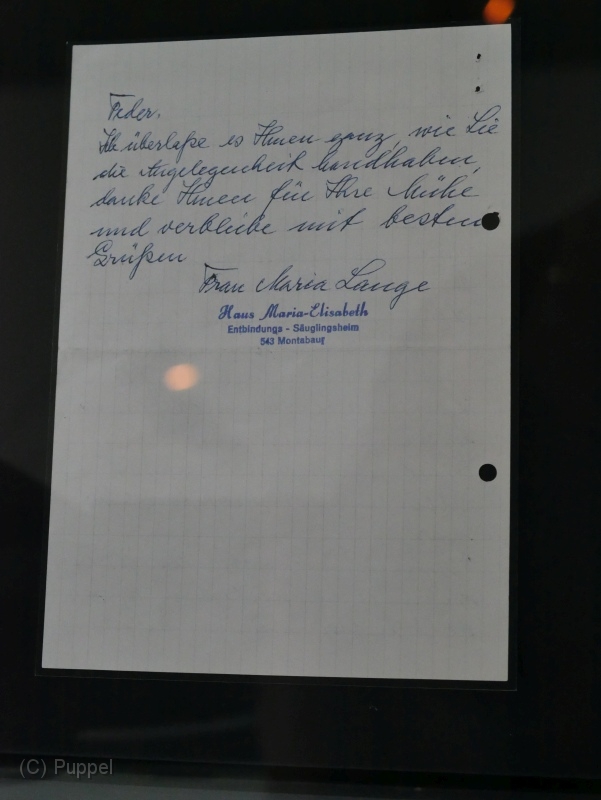 Feder.
Ich überlaße es Ihnen ganz, wie Sie
die Angelegenheit handhaben,
danke Ihnen für Ihre Mühe
und verbleibe mit besten
Grüßen
Frau Maria Lange
Haus Maria-Elisabeth
Entbindungs - Säuglingsheim
543 Montabaur
(C) Puppel